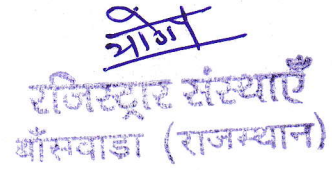 योग
रजिस्ट्रार संस्थाएँ
बाँसवाड़ा (राजस्थान)